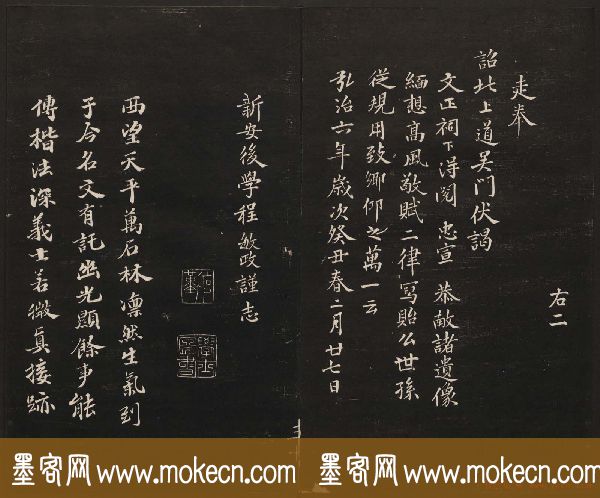 右二
走奉
詔北上道吴門伏謁
文正祠下得閱 忠宣 恭獻諸遺像
緬想髙風敬賦二律寫貽公世孫
從規用致卿仰之萬一云
弘治六年歲次癸丑春二月廿七日
新安後學程敏政謹志
西望天平萬石林凛然生氣到
于今名文有託幽光顯餘事能
傳楷法深義士若微真接跡
墨客网 www.mokecn.com
墨客网 www.mokecn.com